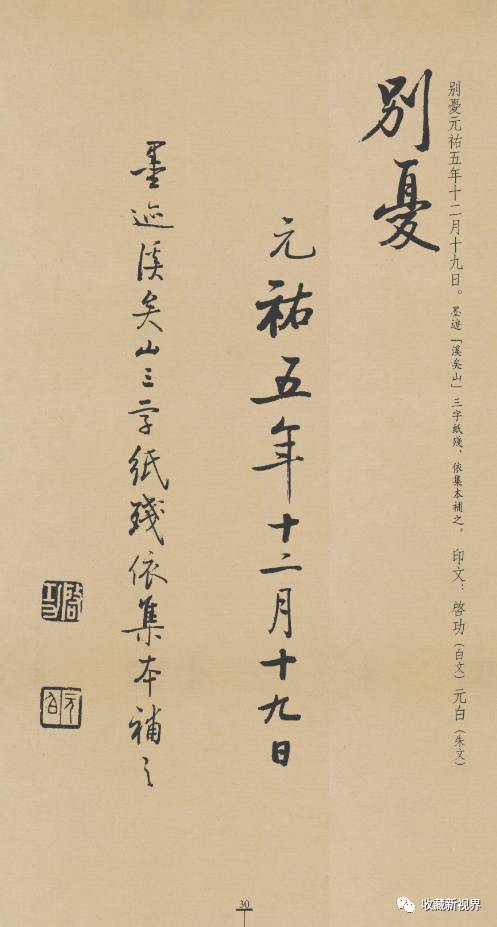 别憂元祐五年十二月十九日。墨迹「溪矣山」三字紙殘，依集本補之。 印文：啓功（白文）元白（朱文）
别憂
元祐五年十二月十九日
墨迹溪矣山三字紙殘依集本補之
啓功
元白
30
收藏新视界